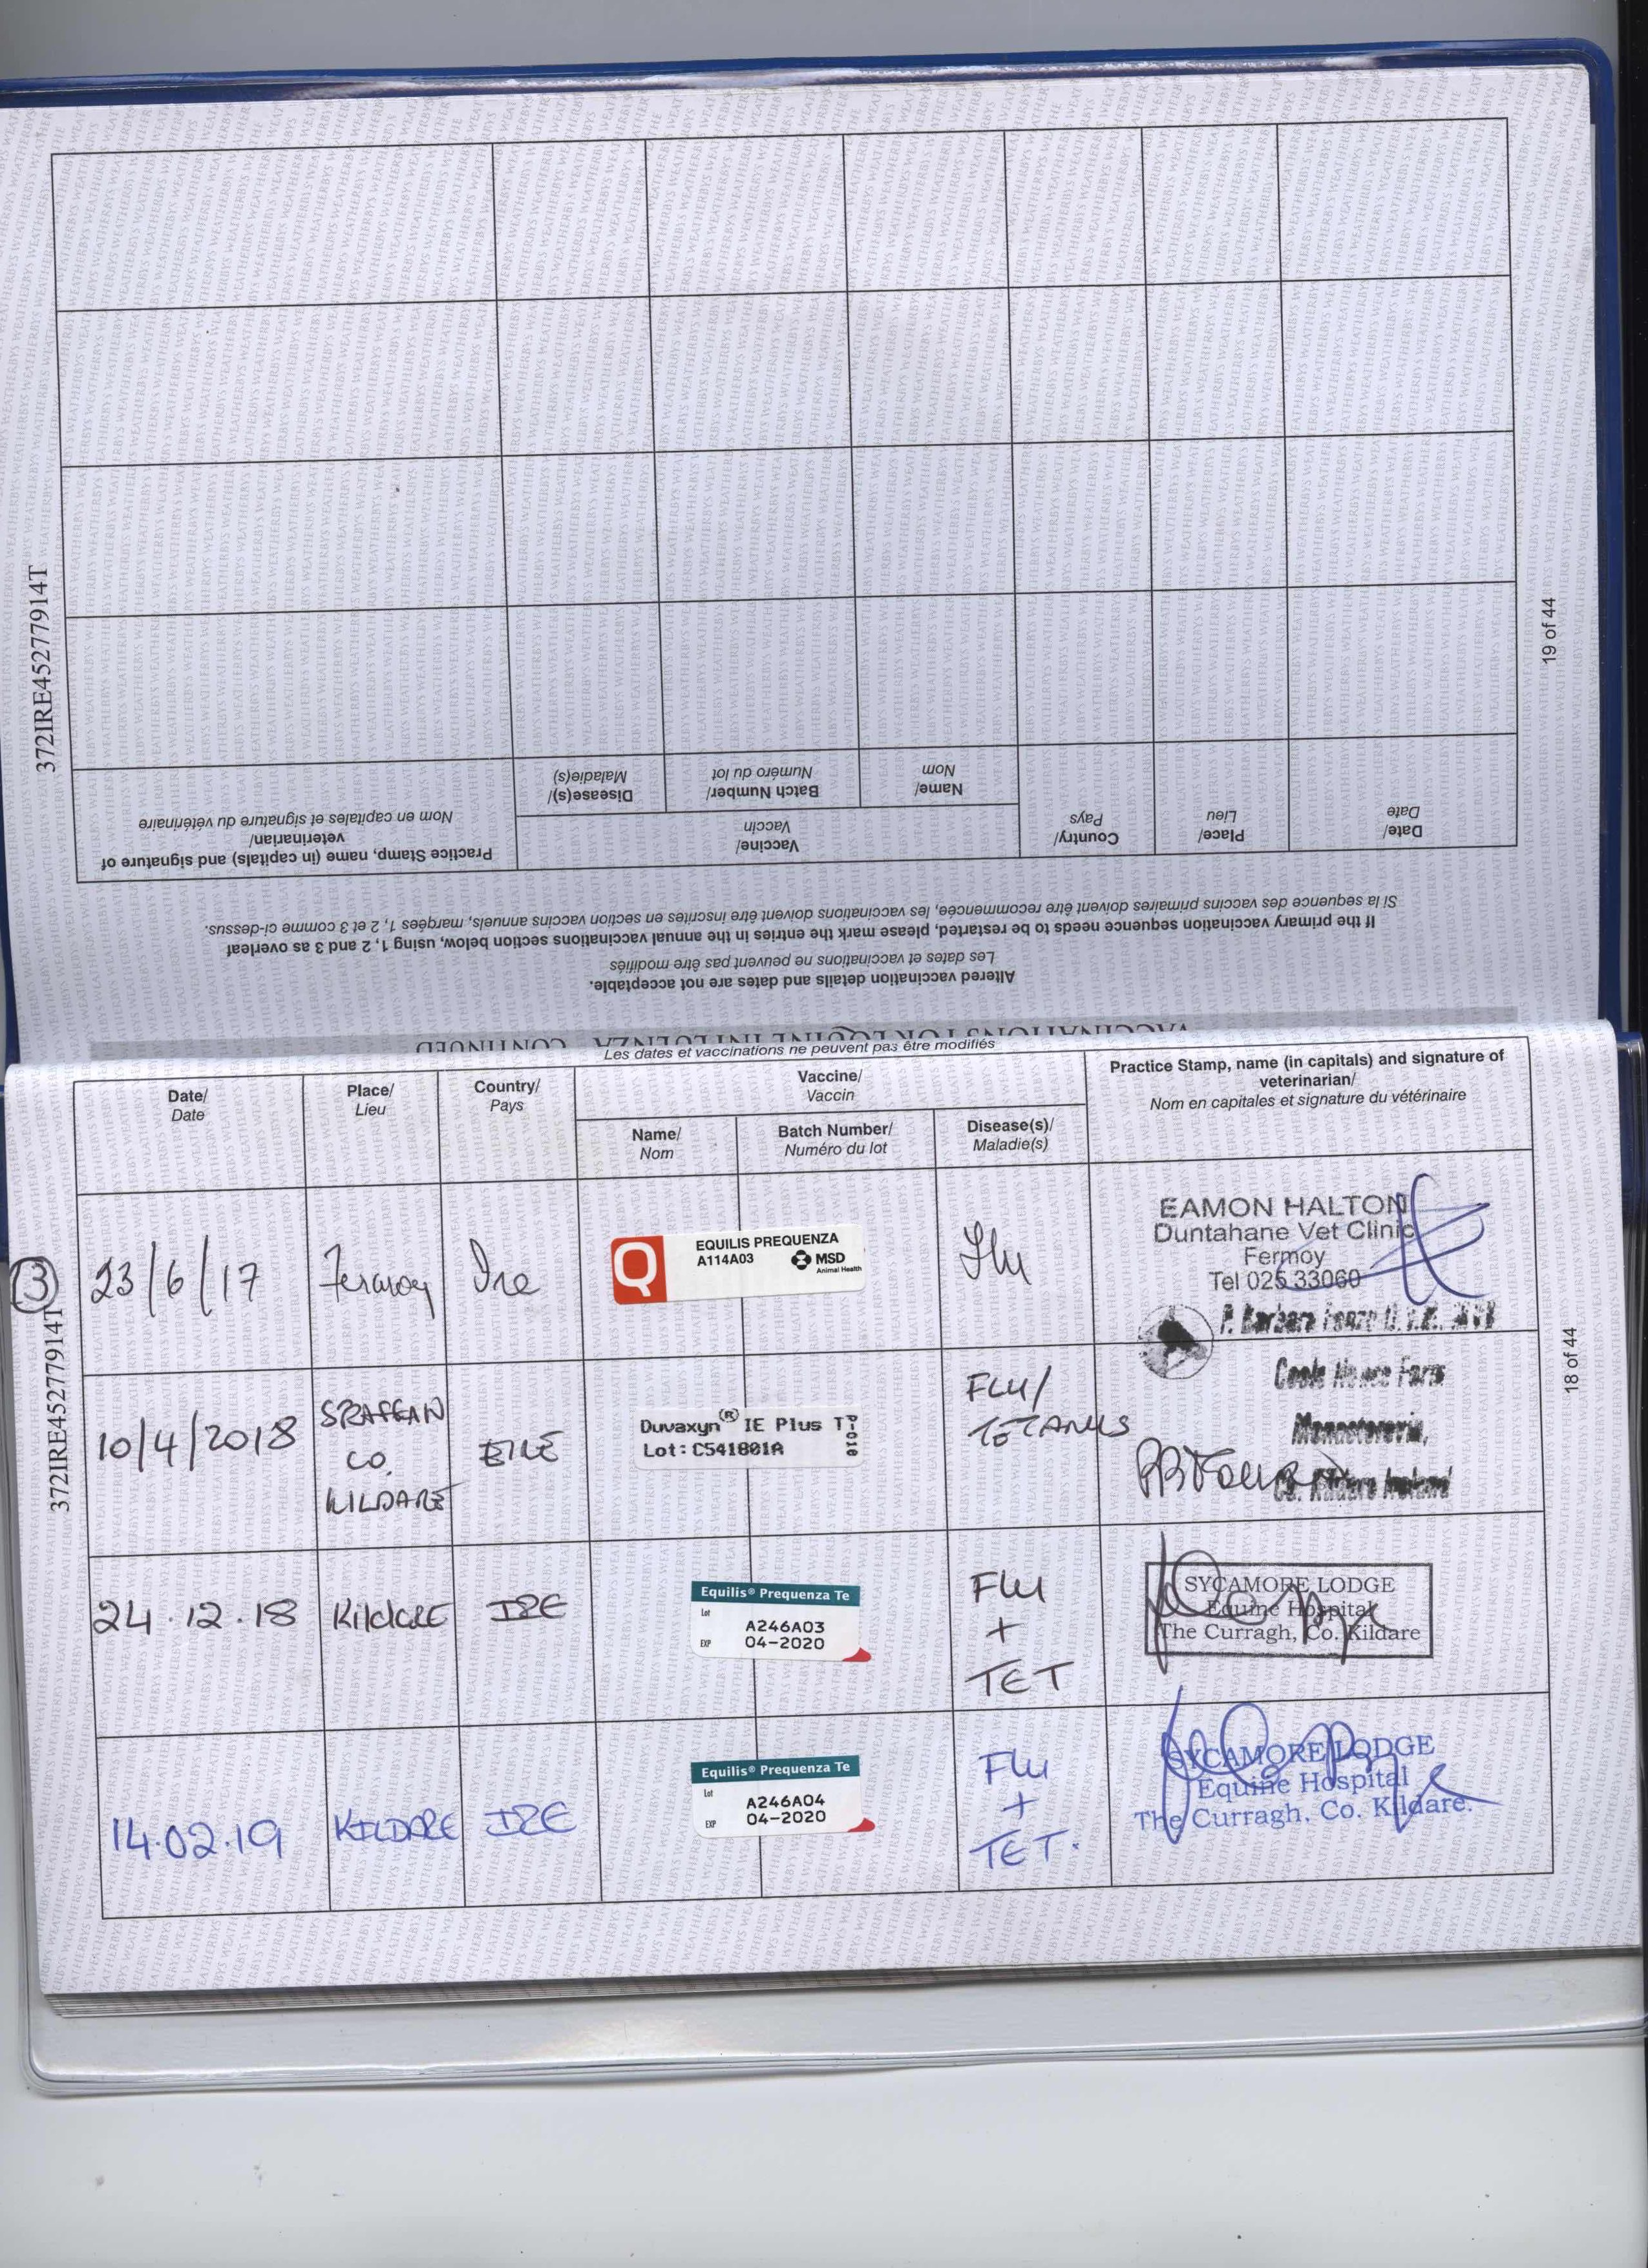 372IRE45277914T
19 of 44
VACCINATIONS FOR EQUINE INFLUENZA - CONTINUED
Altered vaccination details and dates are not acceptable.
Les dates et vaccinations ne peuvent pas être modifiés
If the primary vaccination sequence needs to be restarted, please mark the entries in the annual vaccinations section below, using 1, 2 and 3 as overleaf
Si la sequence des vaccins primaires doivent être recommencée, les vaccinations doivent être inscrites en section vaccins annuels, marqées 1, 2 et 3 comme ci-dessus.
Date/
Date
Place/
Lieu
Country/
Pays
Vaccine/
Vaccin
Name/
Nom
Batch Number/
Numéro du lot
Disease(s)/
Maladie(s)
Practice Stamp, name (in capitals) and signature of
veterinarian/
Nom en capitales et signature du vétérinaire
Les dates et vaccinations ne peuvent pas être modifiés
Date/
Date
Place/
Lieu
Country/
Pays
Vaccine/
Vaccin
Name/
Nom
Batch Number/
Numéro du lot
Disease(s)/
Maladie(s)
Practice Stamp, name (in capitals) and signature of
veterinarian/
Nom en capitales et signature du vétérinaire
3
23/6/17
Fermoy
Ire
Q
EQUILIS PREQUENZA
A114A03
MSD
Animal Health
Flu
EAMON HALTON
Duntahane Vet Clinic
Fermoy
Tel 025 33060
10/4/2018
STRAFFAN
CO.
KILDARE
EIRE
Duvaxyn® IE Plus T
Lot: C541801A
FLU/
TETANUS
P. Barbara
Coole House Farm
Monasterevin,
Co. Kildare Ireland
24.12.18
Kildare
IRE
Equilis® Prequenza Te
Lot
A246A03
EXP
04-2020
FLU
+
TET
SYCAMORE LODGE
Equine Hospital
The Curragh, Co. Kildare
14.02.19
KILDARE
IRE
Equilis® Prequenza Te
Lot
A246A04
EXP
04-2020
FLU
+
TET.
SYCAMORE LODGE
Equine Hospital
The Curragh, Co. Kildare.
372IRE45277914T
18 of 44